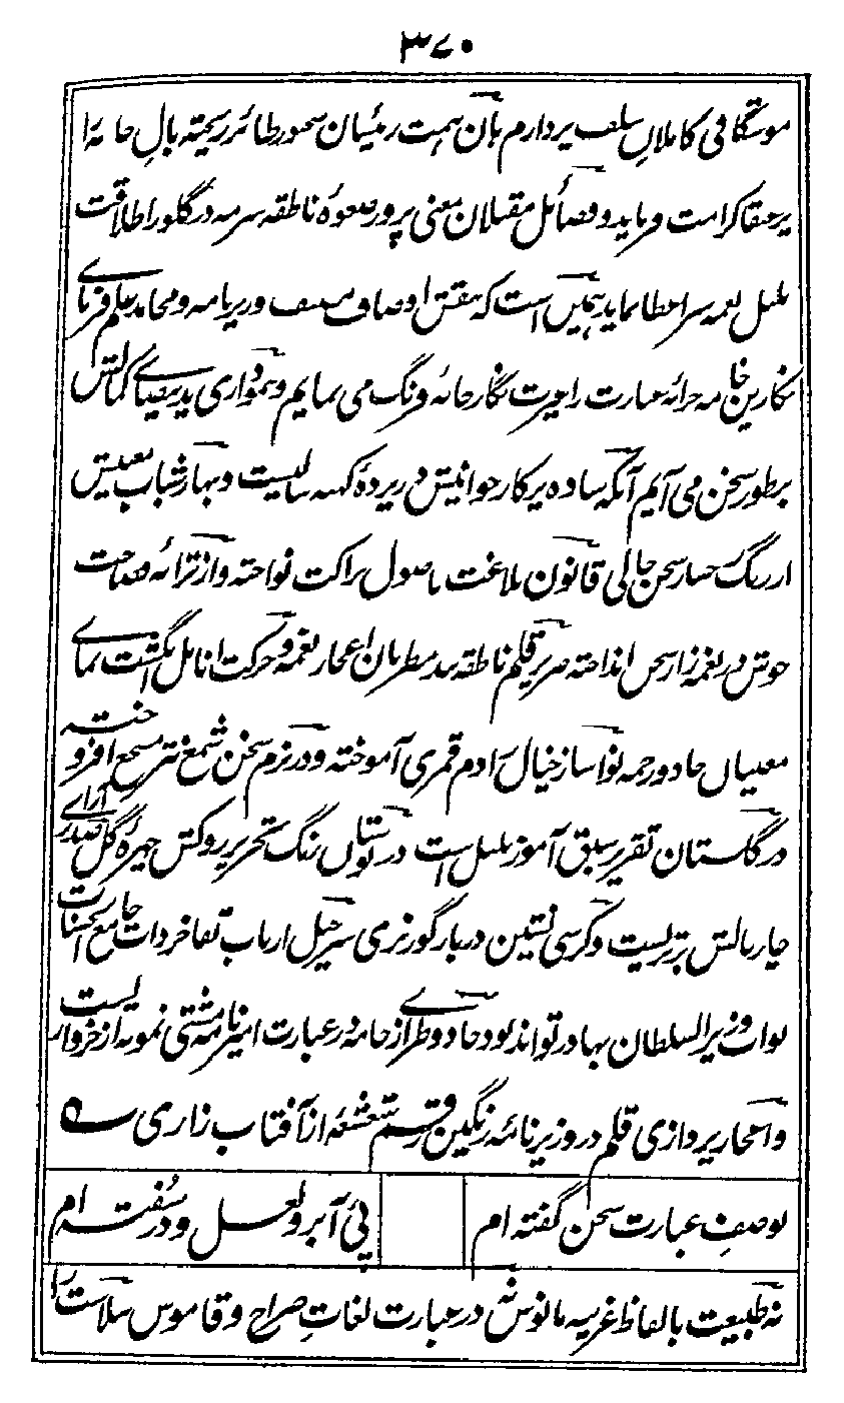 ۳۷۰
موشگافی کاملانِ سلف پردازم ہان ہمت رئیسان سخنور طائر ریختہ بالِ خامہ را
پر عنقا کرامت فرماید و فضائل مقبلان معنی پرور صعوۂ ناطقہ سرمہ در گلو را طلاقت
بلبل نغمہ سرا عطا نماید ہمین است کہ بنقش اوصاف مصنف وزیرنامہ و محامد علم فرمای
نگارین خامہ خزانۂ عبارت را حیرت نگارخانۂ فرنگ می نمایم و بمواری ید بیضای کمالش
بر طور سخن می آیم آنکہ سادہ پرکار جوانیش در پردۂ کہنہ سالیست و بہار شباب
از رنگ سخن حالی قانون بلاغت باصول نزاکت نواختہ و از ترانۂ فصاحت
جوش در نغمہ زار سخن انداختہ صریر قلم ناطقہ بند مطربان اعجاز نغمہ و حرکت انامل انگشت نمای
مغنیان جادو زخمہ نواساز خیال را دم قمری آموختہ و در بزم سخن شمع نثر مسجع افروختہ
در گلستان تقریر سبق آموز بلبل است در بوستان رنگ تحریر روکش چہرۂ گل صدر آرای
چار بالش برتریست و کرسی نشین دربار گورنری سرخیل ارباب تفاخر ذات جامع الحسنات
نواب وزیر السلطان بہادر تواند بود جادو طرازی خامہ در عبارت امیرنامہ مشتی نمونہ از خرواریست
و اعجاز پردازی قلم در وزیرنامہ رنگین رقم شعشعۂ از آفتاب زاری ؎
بوصفِ عبارت سخن گفتہ ام پئی آبرو لعل و در سُفتہ ام
نہ طبیعت بالفاظ غریبہ مانوس نہ در عبارت لغاتِ صراح و قاموس سلاست را